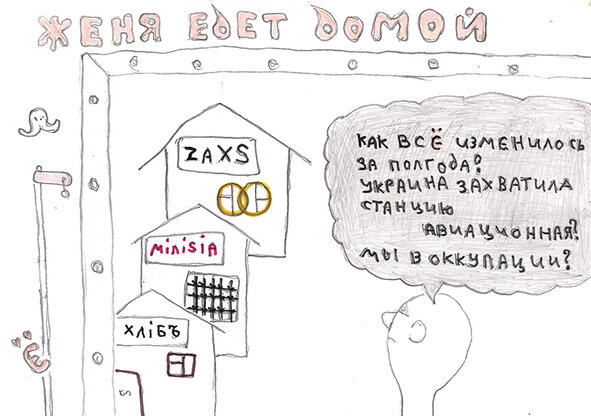 ЖЕНЯ ЕДЕТ ДОМОЙ
ZAXS
MiNiSiA
ХЛІБЪ
КАК ВСЁ ИЗМЕНИЛОСЬ
ЗА ПОЛГОДА?
УКРАИНА ЗАХВАТИЛА
СТАНЦИЮ
АВИАЦИОННАЯ?
МЫ В ОККУПАЦИИ?
Ё